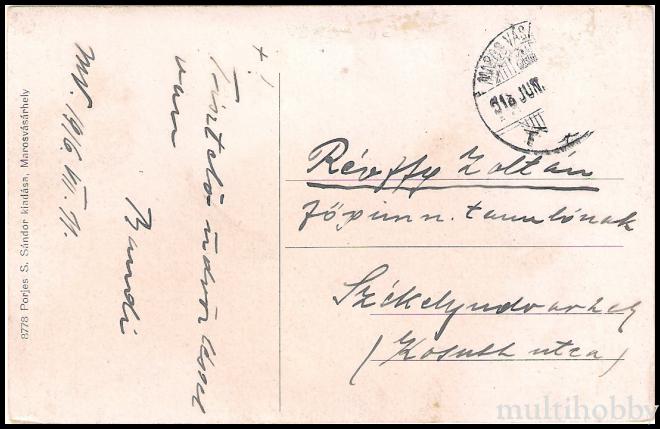 8778 Porjes S. Sándor kiadása, Marosvásárhely
1916. VI. 11.
+!
Tisztelő üdvözlettel
van
Bandi
MAROSVÁSÁ
916 JUN.
Révffy Zoltán
főgimn. tanulónak
Székelyudvarhely
(Kosuth utca)
multihobby